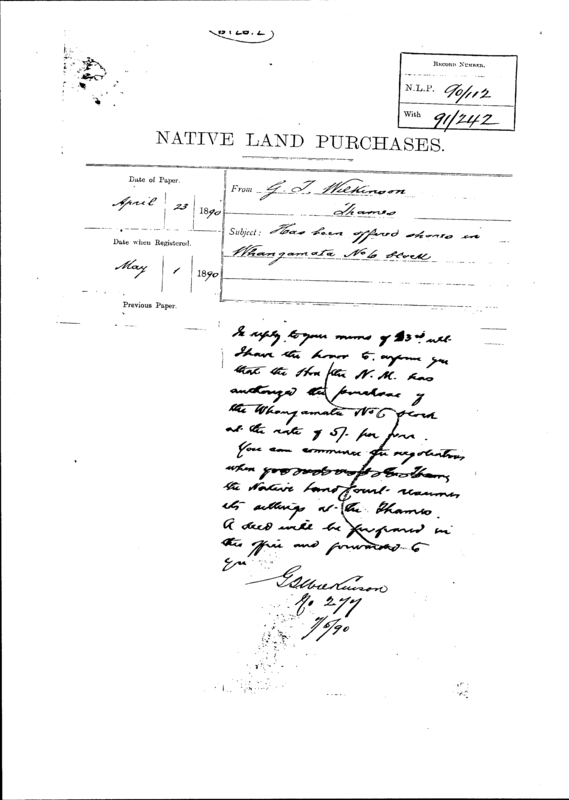 RECORD NUMBER.
N.L.P. 90/112
With 91/242
NATIVE LAND PURCHASES.
Date of Paper.
April 23 1890
From G. T. Wilkinson
Thames
Subject: Has been offered shares in
Whangamata No 6 block
Date when Registered.
May 1 1890
Previous Paper.
In reply to your memo of 23rd ult.
I have the honor to inform you
that the Hon the N. M. has
authorized the purchase of
the Whangamata No 6 block
at the rate of 5/- per acre.
You can commence the negotiations
when
the Native Land Court resumes
its sittings at the Thames.
A deed will be prepared in
this office and forwarded to
you
G T Wilkinson
No 277
7/5/90